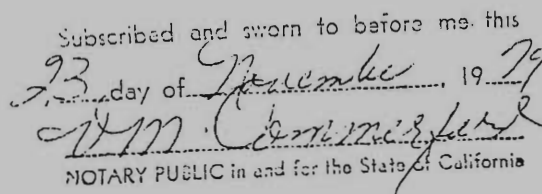 Subscribed and sworn to before me this
23 day of November, 19 79
NOTARY PUBLIC in and for the State of California